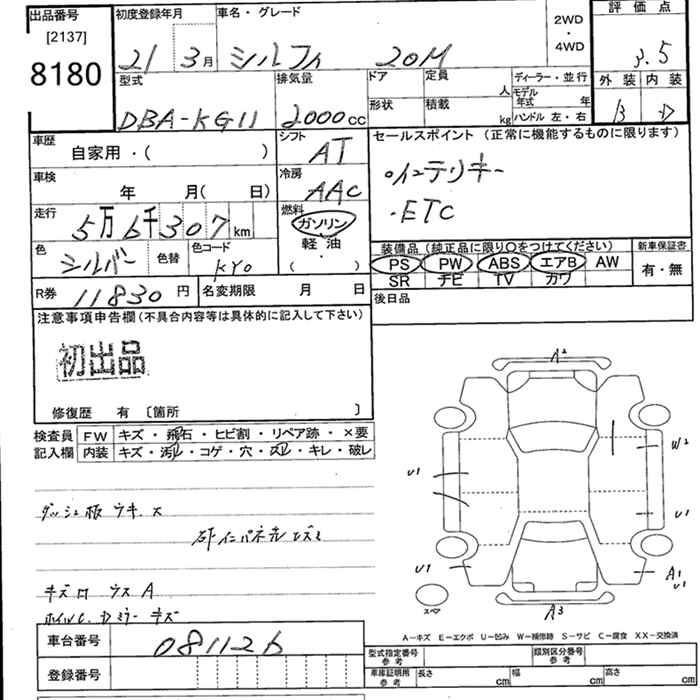 出品番号
[2137]
8180
初度登録年月
21 3月
車名・グレード
シルフィ 20M
2WD
・
4WD
評価点
3.5
外装 内装
B D
型式
DBA-KG11
排気量
2000cc
ドア
定員
人
形状
積載
kg
ディーラー・並行
モデル年式 年
ハンドル 左・右
車歴
自家用・( )
シフト
AT
セールスポイント (正常に機能するものに限ります)
・インテリキー
・ETC
車検
年 月( 日)
冷房
AAC
走行
5万6千307km
燃料
ガソリン
・
軽油
( )
色
シルバー
色替
色コード
KY0
装備品 (純正品に限り○をつけてください)
PS PW ABS エアB AW
SR ナビ TV カワ
新車保証書
有・無
R券 11830円
名変期限 月 日
後日品
注意事項申告欄(不具合内容等は具体的に記入して下さい)
初出品
修復歴 有 〔箇所 〕
検査員記入欄
FW キズ・飛石・ヒビ割・リペア跡・×要
内装 キズ・汚れ・コゲ・穴・スレ・キレ・破レ
ダッシュ板 ウキ.ス
キズ口 ウス A
A2
W2
U1
U1
U1
A1
U1
A3
スペア
A-キズ E-エクボ U-凹み W-補修跡 S-サビ C-腐食 XX-交換済
車台番号
081126
登録番号
型式指定番号
参考
類別区分番号
参考
車庫証明用
参考
長さ cm
幅 cm
高さ cm